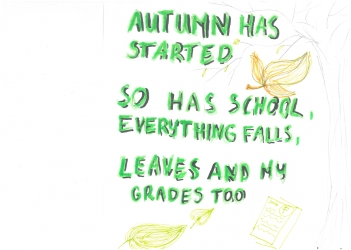 AUTUMN HAS
STARTED
SO HAS SCHOOL,
EVERYTHING FALLS,
LEAVES AND MY
GRADES TOO